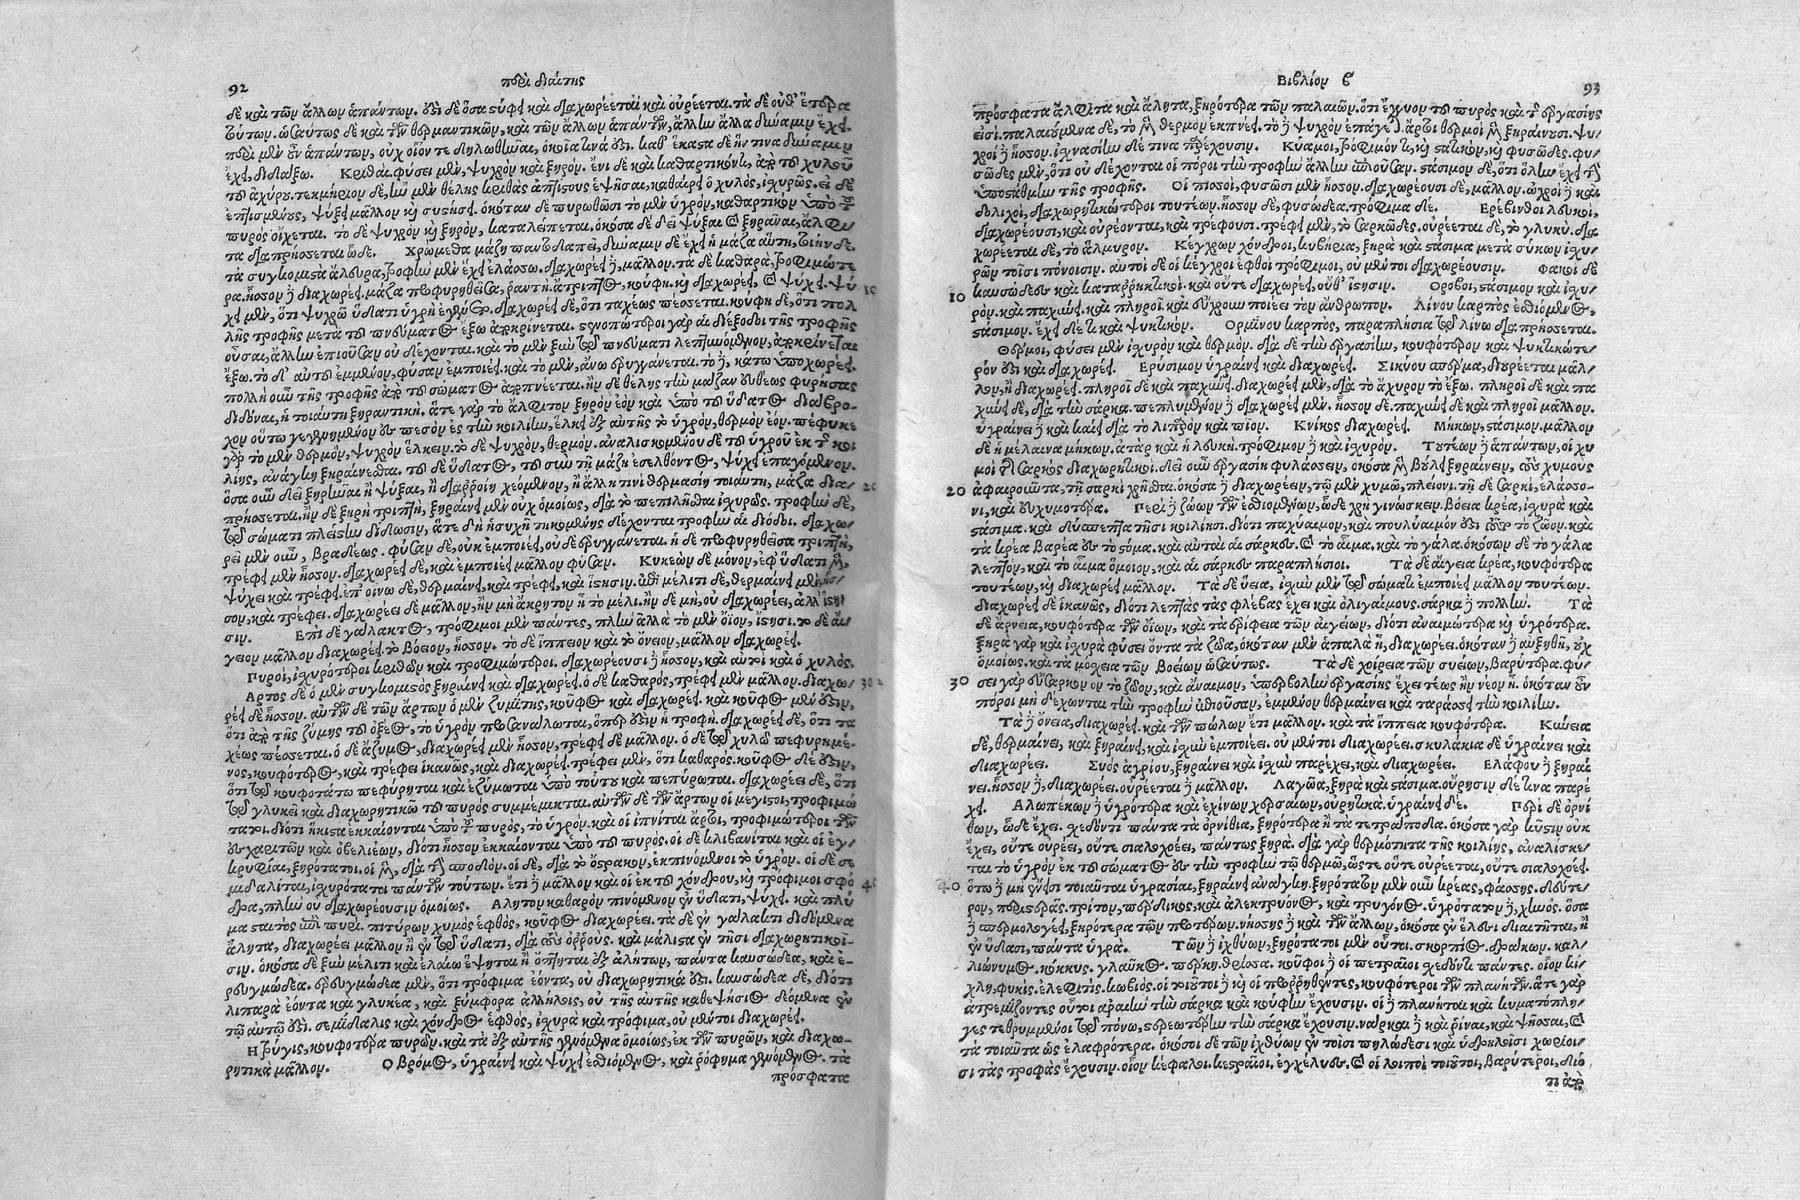 92 περὶ διαίτης
δὲ καὶ τῶν ἄλλων ἁπάντων. ὅτι δὲ ὅσα στύφει καὶ διαχωρέεται καὶ οὐρέεται. τὰ δὲ οὐδ' ἕτερα
τούτων. ὡσαύτως δὲ καὶ τῶν θερμαντικῶν, καὶ τῶν ἄλλων ἁπάντων, ἄλλην ἄλλα δύναμιν ἔχει.
περὶ μὲν οὖν ἁπάντων, οὐχ οἷόν τε δηλωθῆναι, ὁκοῖα τινά ἐστι. καθ' ἕκαστα δὲ ἥν τινα δύναμιν
ἔχει διδάξω. Κριθαὶ φύσει μὲν, ψυχρὸν καὶ ξηρόν. ἔνι δὲ καὶ καθαρτικόν τι, ἀπὸ τοῦ χυλοῦ
τοῦ ἀχύρου. τεκμήριον δὲ, ἢν μὲν θέλῃς κριθὰς ἀπτίστους ἑψῆσαι, καθαίρει ὁ χυλὸς, ἰσχυρῶς. εἰ δὲ
ἐπτισμένους, ψύχει μᾶλλον καὶ συστήσει. ὁκόταν δὲ πυρωθῶσι τὸ μὲν ὑγρὸν, καθαρτικὸν ὑπὸ τοῦ
πυρὸς οἴχεται. τὸ δὲ ψυχρὸν καὶ ξηρὸν, καταλείπεται. ὁκόσα δὲ δεῖ ψύξαι καὶ ξηρᾶναι, ἄλφι-
τα διαπρήσσεται ὧδε. Χρώμεθα μάζῃ παντοδαπεῖ, δύναμιν δὲ ἔχει ἡ μᾶζα αὕτη, τοιήνδε.
τὰ συγκομιστὰ ἄλευρα, τροφὴν μὲν ἔχει ἐλάσσω. διαχωρέει δὲ, μᾶλλον. τὰ δὲ καθαρὰ, τροφιμώτε
ρα. ἧσσον δὲ διαχωρέει. μᾶζα προφυρηθεῖσα, ῥαντὴ ἄτριπτος, κούφη, καὶ διαχωρέει, καὶ ψύχει. ψύ
χει μὲν, ὅτι ψυχρῷ ὕδατι ὑγρὴ ἐγένετο. διαχωρέει δὲ, ὅτι ταχέως πέσσεται. κούφη δὲ, ὅτι πολ
λῆς τροφῆς μετὰ τοῦ πνεύματος ἔξω ἀποκρίνεται. στενοπώτεροι γὰρ αἱ διέξοδοι τῆς τροφῆς
οὖσαι, ἄλλην ἐπιοῦσαν οὐ δέχονται. καὶ τὸ μὲν ξὺν τῷ πνεύματι λεπτυνόμενον, ἀποκρίνεται
ἔξω. τὸ δ' αὐτοῦ ἐμμένον, φῦσαν ἐμποιέει. καὶ τὸ μὲν, ἄνω ἐρυγγάνεται. τὸ δὲ, κάτω ὑποχωρέει.
πολλὴ οὖν τῆς τροφῆς ἀπὸ τοῦ σώματος ἀποπνέεται. ἢν δὲ θέλῃς τὴν μᾶζαν εὐθέως φυρήσας
διδόναι, ἡ τοιαύτη ξηραντική. ἅτε γὰρ τὸ ἄλφιτον ξηρὸν ἐὸν καὶ ὑπὸ τοῦ ὕδατος διάβρο-
χον οὕτω γεγενημένον οὐ πεσὸν ἐς τὴν κοιλίην, ἕλκει ἐξ αὐτῆς τὸ ὑγρὸν, θερμὸν ἐόν. πέφυκε
γὰρ τὸ μὲν θερμὸν, ψυχρὸν ἕλκειν. τὸ δὲ ψυχρὸν, θερμόν. ἀναλισκομένου δὲ τοῦ ὑγροῦ ἐκ τῆς κοι
λίης, ἀνάγκη ξηραίνεσθαι. τοῦ δὲ ὕδατος, τοῦ σὺν τῇ μάζῃ ἐσελθόντος, ψύχει ἐπαγόμενον.
ὅσα οὖν δεῖ ξηρῆναι ἢ ψύξαι, ἢ διαῤῥοίῃ χεόμενον, ἢ ἄλλῃ τινὶ θερμασίῃ τοιαύτῃ, μᾶζα δια-
πρήσσεται. ἢν δὲ ξηρὴ τριπτὴ, ξηραίνει μὲν οὐχ ὁμοίως, διὰ τὸ πεπιλῆσθαι ἰσχυρῶς. τροφὴν δὲ,
τῷ σώματι πλείστην δίδωσιν, ἅτε δὴ ἡσυχῆ τηκομένης δέχονται τροφὴν αἱ δίοδοι. διαχω-
ρεῖ μὲν οὖν, βραδέως. φῦσαν δὲ, οὐκ ἐμποιέει, οὐδὲ ἐρυγγάνεται. ἡ δὲ προφυρηθεῖσα τριπτὴ,
τρέφει μὲν ἧσσον. διαχωρέει δὲ, καὶ ἐμποιέει μᾶλλον φῦσαν. Κυκεὼν δὲ μόνον, ἐφ' ὕδατι μὲν,
ψύχει καὶ τρέφει. ἐπ' οἴνῳ δὲ, θερμαίνει, καὶ τρέφει, καὶ ἵστησιν. ἐπὶ μέλιτι δὲ, θερμαίνει μὲν, ἧσ-
σον, καὶ τρέφει. διαχωρέει δὲ μᾶλλον, ἢν μὴ ἄκρητον ᾖ τὸ μέλι. ἢν δὲ μὴ, οὐ διαχωρέει, ἀλλ' ἵστη
σιν. Ἐπὶ δὲ γάλακτος, τρόφιμοι μὲν πάντες, πλὴν ἀλλὰ τὸ μὲν ὄϊον, ἵστησι. τὸ δὲ αἴ-
γειον μᾶλλον διαχωρέει. τὸ βόειον, ἧσσον. τὸ δὲ ἵππειον καὶ τὸ ὄνειον, μᾶλλον διαχωρέει.
Πυροὶ, ἰσχυρότεροι κριθῶν καὶ τροφιμώτεροι. διαχωρέουσι δὲ ἧσσον, καὶ αὐτοὶ καὶ ὁ χυλός.
Ἄρτος δὲ ὁ μὲν συγκομιστὸς ξηραίνει καὶ διαχωρέει. ὁ δὲ καθαρὸς, τρέφει μὲν μᾶλλον. διαχω-
ρέει δὲ ἧσσον. αὐτῶν δὲ τῶν ἄρτων ὁ μὲν ζυμίτης, κοῦφος καὶ διαχωρέει. καὶ κοῦφος μὲν ἐστιν,
ὅτι ἀπὸ τῆς ζύμης τοῦ ὀξέος, τὸ ὑγρὸν προσανάλωται, ὅπερ ἐστὶν ἡ τροφή. διαχωρέει δὲ, ὅτι τα
χέως πέσσεται. ὁ δὲ ἄζυμος, διαχωρέει μὲν ἧσσον, τρέφει δὲ μᾶλλον. ὁ δὲ τῷ χυλῷ πεφυρημέ-
νος, κουφότερος, καὶ τρέφει ἱκανῶς, καὶ διαχωρέει. τρέφει μὲν, ὅτι καθαρός. κοῦφος δέ ἐστιν,
ὅτι τῷ κουφοτάτῳ πεφύρηται καὶ ἐζύμωται ὑπὸ τούτου καὶ πεπύρωται. διαχωρέει δὲ, ὅτι
τῷ γλυκεῖ καὶ διαχωρητικῷ τοῦ πυρὸς συμμέμικται. αὐτῶν δὲ τῶν ἄρτων οἱ μέγιστοι, τροφιμώ
τατοι. διότι ἥκιστα ἐκκαίονται ὑπὸ τοῦ πυρὸς, τὸ ὑγρόν. καὶ οἱ ἰπνῖται ἄρτοι, τροφιμώτεροι τῶν
ἐσχαριτῶν καὶ ὀβελιέων, διότι ἧσσον ἐκκαίονται ὑπὸ τοῦ πυρός. οἱ δὲ κλιβανῖται καὶ οἱ ἐγ-
κρυφίαι, ξηρότατοι. οἱ μὲν, διὰ τὴν σποδόν. οἱ δὲ, διὰ τὸ ὄστρακον, ἐκπινόμενοι τὸ ὑγρόν. οἱ δὲ σε
μιδαλῖται, ἰσχυρότατοι πάντων τούτων. ἔτι δὲ μᾶλλον καὶ οἱ ἐκ τοῦ χόνδρου, καὶ τρόφιμοι σφό
δρα, πλὴν οὐ διαχωρέουσιν ὁμοίως. Ἄλητον καθαρὸν πινόμενον ἐν ὕδατι, ψύχει. καὶ πλύ
μα σταιτὸς ἐπὶ πυρί. πιτύρων χυμὸς ἑφθὸς, κοῦφος διαχωρέει. τὰ δὲ ἐν γάλακτι διδόμενα
ἄλητα, διαχωρέει μᾶλλον ἢ ἐν τῷ ὕδατι, διὰ τοὺς ὀῤῥούς. καὶ μάλιστα ἐν τῇσι διαχωρητικοῖ-
σιν. ὁκόσα δὲ ξὺν μέλιτι καὶ ἐλαίῳ ἕψηται ἢ ὀπτῆται ἐξ ἀλήτων, πάντα καυσώδεα, καὶ ἐ-
ρευγμώδεα. ἐρευγμώδεα μὲν, ὅτι τρόφιμα ἐόντα, οὐ διαχωρητικά ἐστι. καυσώδεα δὲ, διότι
λιπαρὰ ἐόντα καὶ γλυκέα, καὶ ξύμφορα ἀλλήλοις, οὐ τῆς αὐτῆς καθεψήσιος δεόμενα ἐν
τῷ αὐτῷ ἐστι. σεμίδαλις καὶ χόνδρος ἑφθὸς, ἰσχυρὰ καὶ τρόφιμα, οὐ μέντοι διαχωρέει.
Ἡ τίφις, κουφότερα πυρῶν. καὶ τὰ ἐξ αὐτῆς γενόμενα ὁμοίως, ἐκ τῶν πυρῶν, καὶ διαχω-
ρητικὰ μᾶλλον. Ὁ βρόμος, ὑγραίνει καὶ ψύχει ἐσθιόμενος, καὶ ῥόφημα γενόμενος. τὰ
πρόσφατα
Βιβλίον β 93
πρόσφατα ἄλφιτα καὶ ἄλητα, ξηρότερα τῶν παλαιῶν. ὅτι ἔγγιον τοῦ πυρὸς καὶ τῆς ἐργασίης
εἰσί. παλαιούμενα δὲ, τὸ μὲν θερμὸν ἐκπνέει. τὸ δὲ ψυχρὸν ἐπάγεται. ἄρτοι θερμοὶ μὲν ξηραίνουσι. ψυ-
χροὶ δὲ ἧσσον. ἰσχνασίην δέ τινα παρέχουσιν. Κύαμοι, τρόφιμόν τι, καὶ στατικὸν, καὶ φυσῶδες. φυ-
σῶδες μὲν, ὅτι οὐ δέχονται οἱ πόροι τὴν τροφὴν ἅλην ἐπιοῦσαν. στάσιμον δὲ, ὅτι ὀλίγην ἔχει τὴν
ὑποστάθμην τῆς τροφῆς. Οἱ πισσοὶ, φυσῶσι μὲν ἧσσον. διαχωρέουσι δὲ, μᾶλλον. ὦχροι δὲ καὶ
δολιχοὶ, διαχωρητικώτεροι τουτέων. ἧσσον δὲ, φυσώδεα. τρόφιμα δέ. Ἐρέβινθοι λευκοὶ,
διαχωρέουσι, καὶ οὐρέονται, καὶ τρέφουσι. τρέφει μὲν, τὸ σαρκῶδες. οὐρέεται δὲ, τὸ γλυκύ. δια
χωρέεται δὲ, τὸ ἁλμυρόν. Κέγχρων χόνδροι, κυρήβια, ξηρὰ καὶ στάσιμα μετὰ σύκων ἰσχυ-
ρῶν τοῖσι πόνοισιν. αὐτοὶ δὲ οἱ κέγχροι ἑφθοὶ τρόφιμοι, οὐ μέντοι διαχωρέουσιν. Φακοὶ δὲ
10 καυσώδεες καὶ ταρρηκτικοί. καὶ οὔτε διαχωρέει, οὐθ' ἵστησιν. Ὄροβοι, στάσιμον καὶ ἰσχυ-
ρόν. καὶ παχύνει, καὶ πληροῖ. καὶ εὔχρουν ποιέει τὸν ἄνθρωπον. Λίνου καρπὸς ἐσθιόμενος,
στάσιμον. ἔχει δέ τι καὶ ψυκτικόν. Ὁρμίνου καρπὸς, παραπλήσια τῷ λίνῳ διαπρήσσεται.
Θέρμοι, φύσει μὲν ἰσχυρὸν καὶ θερμόν. διὰ δὲ τὴν ἐργασίην, κουφότερον καὶ ψυκτικώτε-
ρόν ἐστι καὶ διαχωρέει. Ἐρύσιμον ὑγραίνει καὶ διαχωρέει. Σικύου σπέρμα, διουρέεται μᾶλ-
λον, ἢ διαχωρέει. πληροῖ δὲ καὶ παχύνει. διαχωρέει μὲν, διὰ τὸ ἄχυρον τὸ ἔξω. πληροῖ δὲ καὶ πα
χύνει δὲ, διὰ τὴν σάρκα. πεπλυμένον δὲ διαχωρέει μὲν, ἧσσον δέ. παχύνει δὲ καὶ πληροῖ μᾶλλον.
ὑγραίνει δὲ καὶ καίει διὰ τὸ λιπαρὸν καὶ πῖον. Κνίκος διαχωρέει. Μήκων, στάσιμον. μᾶλλον
δὲ ἡ μέλαινα μήκων. ἀτὰρ καὶ ἡ λευκή. τρόφιμον δὲ καὶ ἰσχυρόν. Τουτέων δὲ ἁπάντων, οἱ χυ
μοὶ τῆς σαρκὸς διαχωρητικοί. δεῖ οὖν ἐργασίῃ φυλάσσειν, ὁκόσα μὲν βούλει ξηραίνειν, τοὺς χυμοὺς
20 ἀφαιροῦντα, τῇ σαρκὶ χρῆσθαι. ὁκόσα δὲ διαχωρέειν, τῷ μὲν χυμῷ, πλείονι. τῇ δὲ σαρκὶ, ἐλάσσο-
νι, καὶ εὐχυμοτέρᾳ. Περὶ δὲ ζώων τῶν ἐσθιομένων, ὧδε χρὴ γινώσκειν. βόεια κρέα, ἰσχυρὰ καὶ
στάσιμα. καὶ δύσπεπτα τῇσι κοιλίῃσι. διότι παχύαιμον, καὶ πουλύαιμόν ἐστι τοῦτο τὸ ζῶον. καὶ
τὰ κρέα βαρέα ἐς τὸ σῶμα. καὶ αὐταὶ αἱ σάρκες. καὶ τὸ αἷμα. καὶ τὸ γάλα. ὁκόσων δὲ τὸ γάλα
λεπτὸν, καὶ τὸ αἷμα ὅμοιον, καὶ αἱ σάρκες παραπλήσιοι. Τὰ δὲ αἴγεια κρέα, κουφότερα
τουτέων, καὶ διαχωρέει μᾶλλον. Τὰ δὲ ὕεια, ἰσχὺν μὲν τῷ σώματι ἐμποιέει μᾶλλον τουτέων.
διαχωρέει δὲ ἱκανῶς, διότι λεπτὰς τὰς φλέβας ἔχει καὶ ὀλιγαίμους. σάρκα δὲ πολλήν. Τὰ
δὲ ἄρνεια, κουφότερα τῶν ὀΐων, καὶ τὰ ἐρίφεια τῶν αἰγέων, διότι ἀναιμότερα καὶ ὑγρότερα.
ξηρὰ γὰρ καὶ ἰσχυρὰ φύσει ὄντα τὰ ζῶα, ὁκόταν μὲν ἁπαλὰ ᾖ, διαχωρέει. ὁκόταν δὲ αὐξηθῇ, οὐχ
ὁμοίως. καὶ τὰ μόσχεια τῶν βοείων ὡσαύτως. Τὰ δὲ χοίρεια τῶν συείων, βαρύτερα. φύ-
30 σει γὰρ εὔσαρκον ὂν τὸ ζῶον, καὶ ἄναιμον, ὑπερβολὴν ὑγρασίης ἔχει τέως ἢν νέον ᾖ. ὁκόταν οὖν
πόροι μὴ δέχωνται τὴν τροφὴν ἐπιοῦσαν, ἐμμένον θερμαίνει καὶ ταράσσει τὴν κοιλίην.
Τὰ δὲ ὄνεια, διαχωρέει. καὶ τῶν πώλων ἔτι μᾶλλον. καὶ τὰ ἵππεια κουφότερα. Κύνεια
δὲ, θερμαίνει, καὶ ξηραίνει, καὶ ἰσχὺν ἐμποιέει. οὐ μέντοι διαχωρέει. σκυλάκια δὲ ὑγραίνει καὶ
διαχωρέει. Συὸς ἀγρίου, ξηραίνει καὶ ἰσχὺν παρέχει, καὶ διαχωρέει. Ἐλάφου δὲ ξηραί
νει. ἧσσον δὲ, διαχωρέει. οὐρέεται δὲ μᾶλλον. Λαγῶα, ξηρὰ καὶ στάσιμα. οὔρησιν δέ τινα παρέ
χει. Ἀλωπέκων δὲ ὑγρότερα καὶ ἐχίνων χερσαίων, οὐρητικά. ὑγραίνει δέ. Περὶ δὲ ὀρνί
θων, ὧδε ἔχει. σχεδόν τι πάντα τὰ ὀρνίθια, ξηρότερα ἢ τὰ τετράποδα. ὁκόσα γὰρ κύστιν οὐκ
ἔχει, οὔτε οὐρέει, οὔτε σιαλοχοέει, πάντως ξηρά. διὰ γὰρ θερμότητα τῆς κοιλίης, ἀναλίσκε-
ται τὸ ὑγρὸν ἐκ τοῦ σώματος ἐς τὴν τροφὴν τῷ θερμῷ, ὥστε οὔτε οὐρέεται, οὔτε σιαλοχοέει.
40 ὅτῳ δὲ μὴ ἔνεισι τοιαῦται ὑγρασίαι, ξηραίνει ἀνάγκη. ξηρότατον μὲν οὖν κρέας, φάσσης. δεύτε-
ρον, περιστερᾶς. τρίτον, πέρδικος, καὶ ἀλεκτρυόνος, καὶ τρυγόνος. ὑγρότατον δὲ, χηνός. ὅσα
δὲ σπερμολογέει, ξηρότερα τῶν προτέρων. νήσσης δὲ καὶ τῶν ἄλλων, ὁκόσα ἐν ἕλεσι διαιτῆται, ἢ
ἐν ὕδασι, πάντα ὑγρά. Τῶν δὲ ἰχθύων, ξηρότατοι μὲν οὗτοι. σκορπίος. δράκων. καλ-
λιώνυμος. κόκκυξ. γλαῦκος. πέρκη. θρίσσα. κοῦφοι δὲ οἱ πετραῖοι σχεδόν τι πάντες. οἷον κί-
χλη, φυκὶς. ἐλεφιτίς. κωβιός. οἱ τοιοῦτοι δὲ καὶ οἱ προῤῥηθέντες, κουφότεροι τῶν πλανήτων. ἅτε γὰρ
ἀτρεμίζοντες οὗτοι ἀραιὴν τὴν σάρκα καὶ κούφην ἔχουσιν. οἱ δὲ πλανῆται καὶ κυματόπλη-
γες τεθρυμμένοι τῷ πόνῳ, στερεωτέρην τὴν σάρκα ἔχουσιν. νάρκαι δὲ καὶ ῥῖναι, καὶ ψῆσσαι, καὶ
τὰ τοιαῦτα ὡς ἐλαφρότερα. ὁκόσοι δὲ τῶν ἰχθύων ἐν τοῖσι πηλώδεσι καὶ ὑδρηλοῖσι χωρίοι-
σι τὰς τροφὰς ἔχουσιν. οἷον κέφαλοι. κεστραῖοι. ἐγχέλυες. καὶ οἱ λοιποὶ τοιοῦτοι, βαρύτεροι, διό
τι ἀπὸ